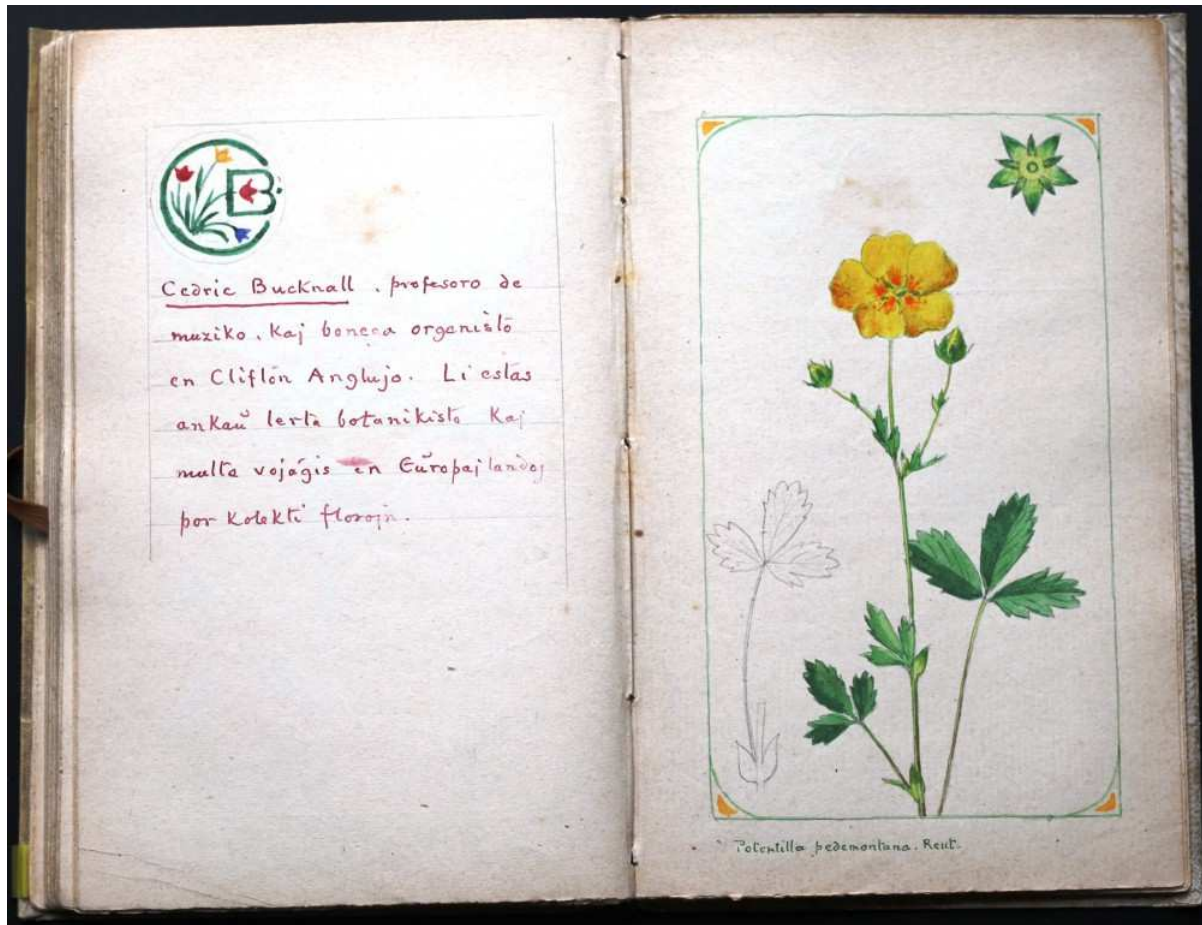 CB
Cedric Bucknall. profesoro de
muziko. Kaj bonega organisto
en Clifton Anglujo. Li estas
ankaŭ lerta botanikisto Kaj
multa vojaĝis en Eŭropaj landoj
por Kolekti florojn.
Potentilla pedemontana. Reut.